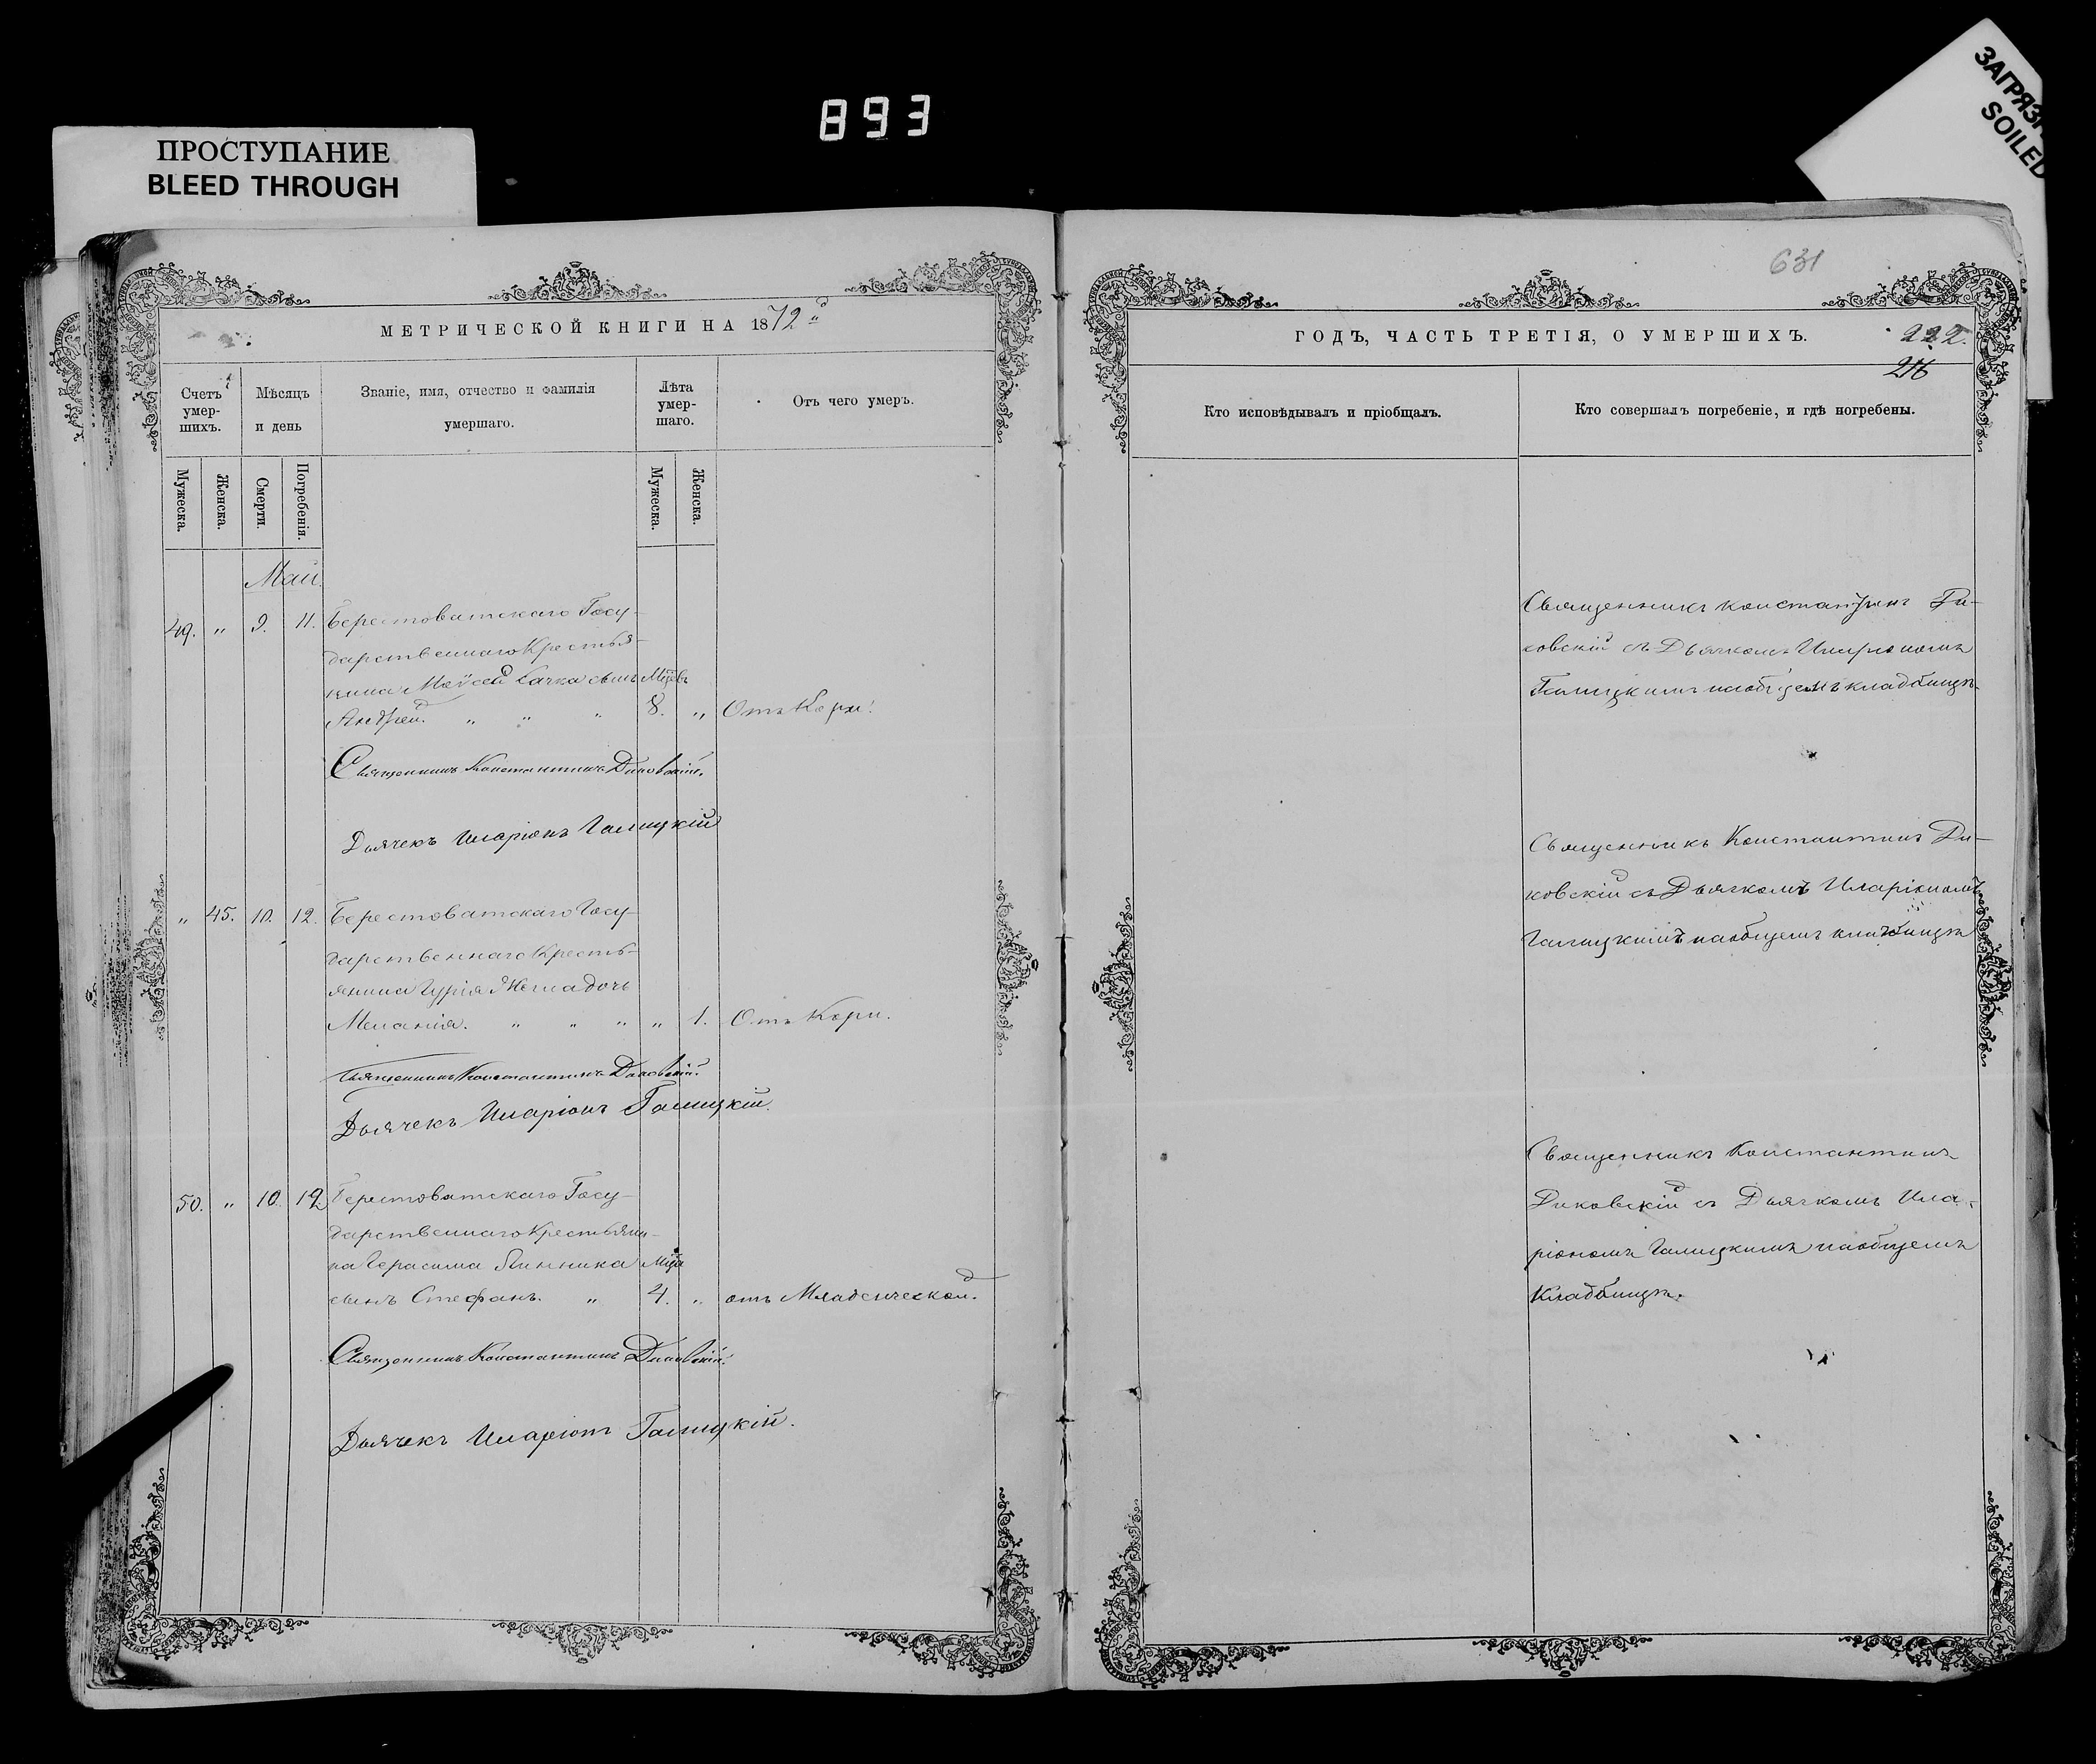 893
ПРОСТУПАНИЕ
BLEED THROUGH
SOILED
МЕТРИЧЕСКОЙ КНИГИ НА 1872й
Счетъ умер-шихъ.
Мѣсяцъ и день
Званіе, имя, отчество и фамилія умершаго.
Лѣта умер-шаго.
Отъ чего умеръ.
Мужеска.
Женска.
Смерти.
Погребенія.
Мужеска.
Женска.
Май.
49. „ 9. 11. Берестоватскаго Госу-
дарственнаго Крестья-
нина Моѵсей сынъ
Андрей. „ „ „ 8. „ Отъ Кори.
Священникъ Константинъ Диковскій.
Дьячекъ Иларіонъ Галицкій
„ 45. 10. 12. Берестоватскаго Госу-
дарственнаго Кресть-
янина Гурія дочь
Меланія. „ „ „ „ 1. Отъ Кори.
Священникъ Константинъ Диковскій.
Дьячекъ Иларіонъ Галицкій.
50. „ 10. 12 Берестоватскаго Госу-
дарственнаго Крестьяни-
на Герасима
сынъ Стефанъ. „ 4. „ отъ Младенческой.
Священникъ Константинъ Диковскій.
Дьячекъ Иларіонъ Галицкій.
631
ГОДЪ, ЧАСТЬ ТРЕТІЯ, О УМЕРШИХЪ.
222.
216
Кто исповѣдывалъ и пріобщалъ.
Кто совершалъ погребеніе, и гдѣ погребены.
Священникъ Константинъ Ди-
ковскій съ Дьячкомъ Иларіономъ
Галицкимъ наобщемъ кладбищѣ.
Священникъ Константинъ Ди-
ковскій съ Дьячкомъ Иларіономъ
Галицкимъ наобщемъ кладбищѣ
Священникъ Константинъ
Диковскій съ Дьячкомъ Ила-
ріономъ Галицкимъ наобщемъ
Кладбищѣ.